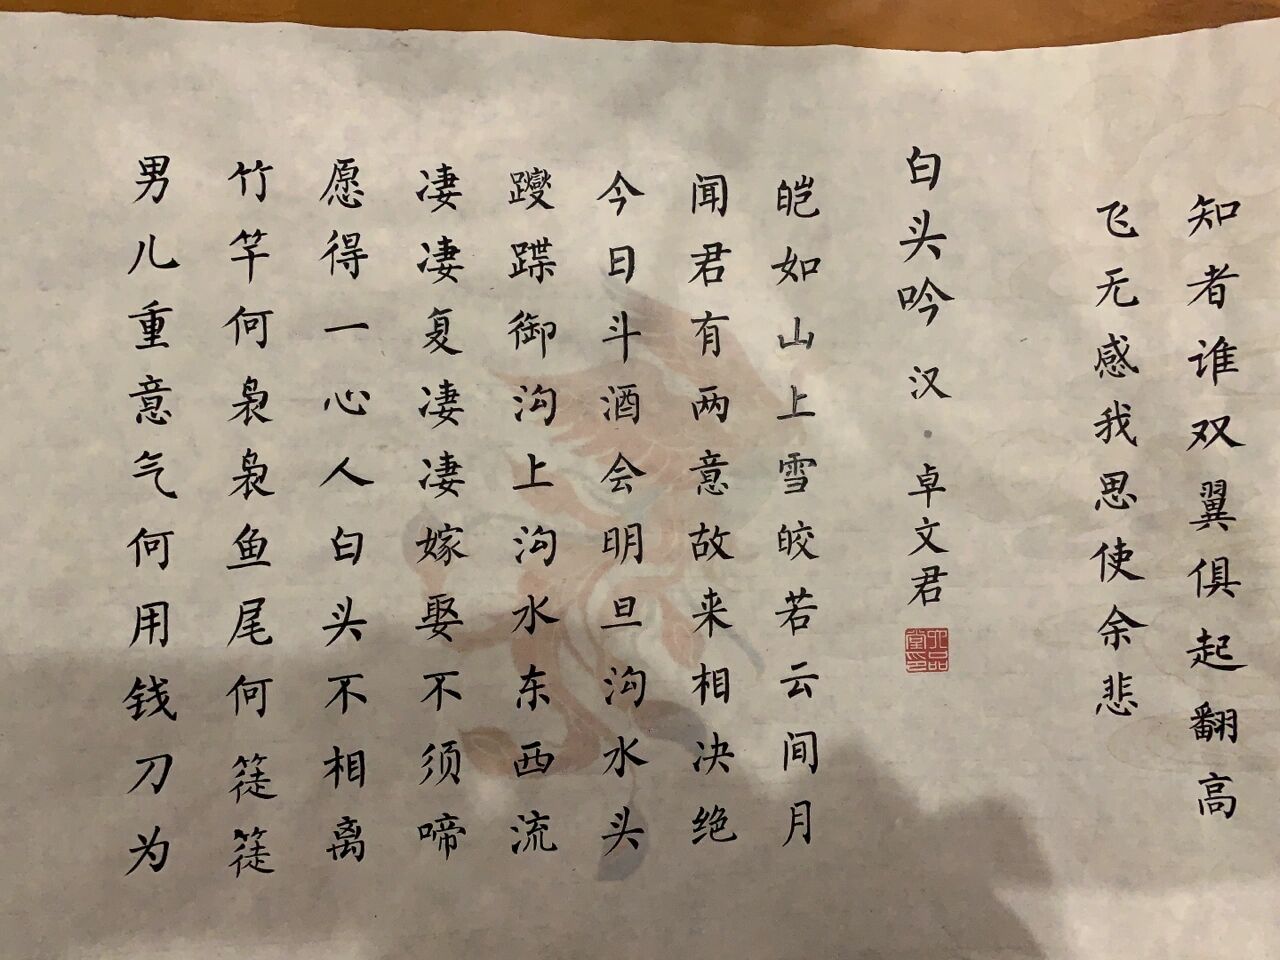 知者谁双翼俱起翻高
飞无感我思使余悲
白头吟 汉·卓文君
皑如山上雪皎若云间月
闻君有两意故来相决绝
今日斗酒会明旦沟水头
躞蹀御沟上沟水东西流
凄凄复凄凄嫁娶不须啼
愿得一心人白头不相离
竹竿何袅袅鱼尾何簁簁
男儿重意气何用钱刀为